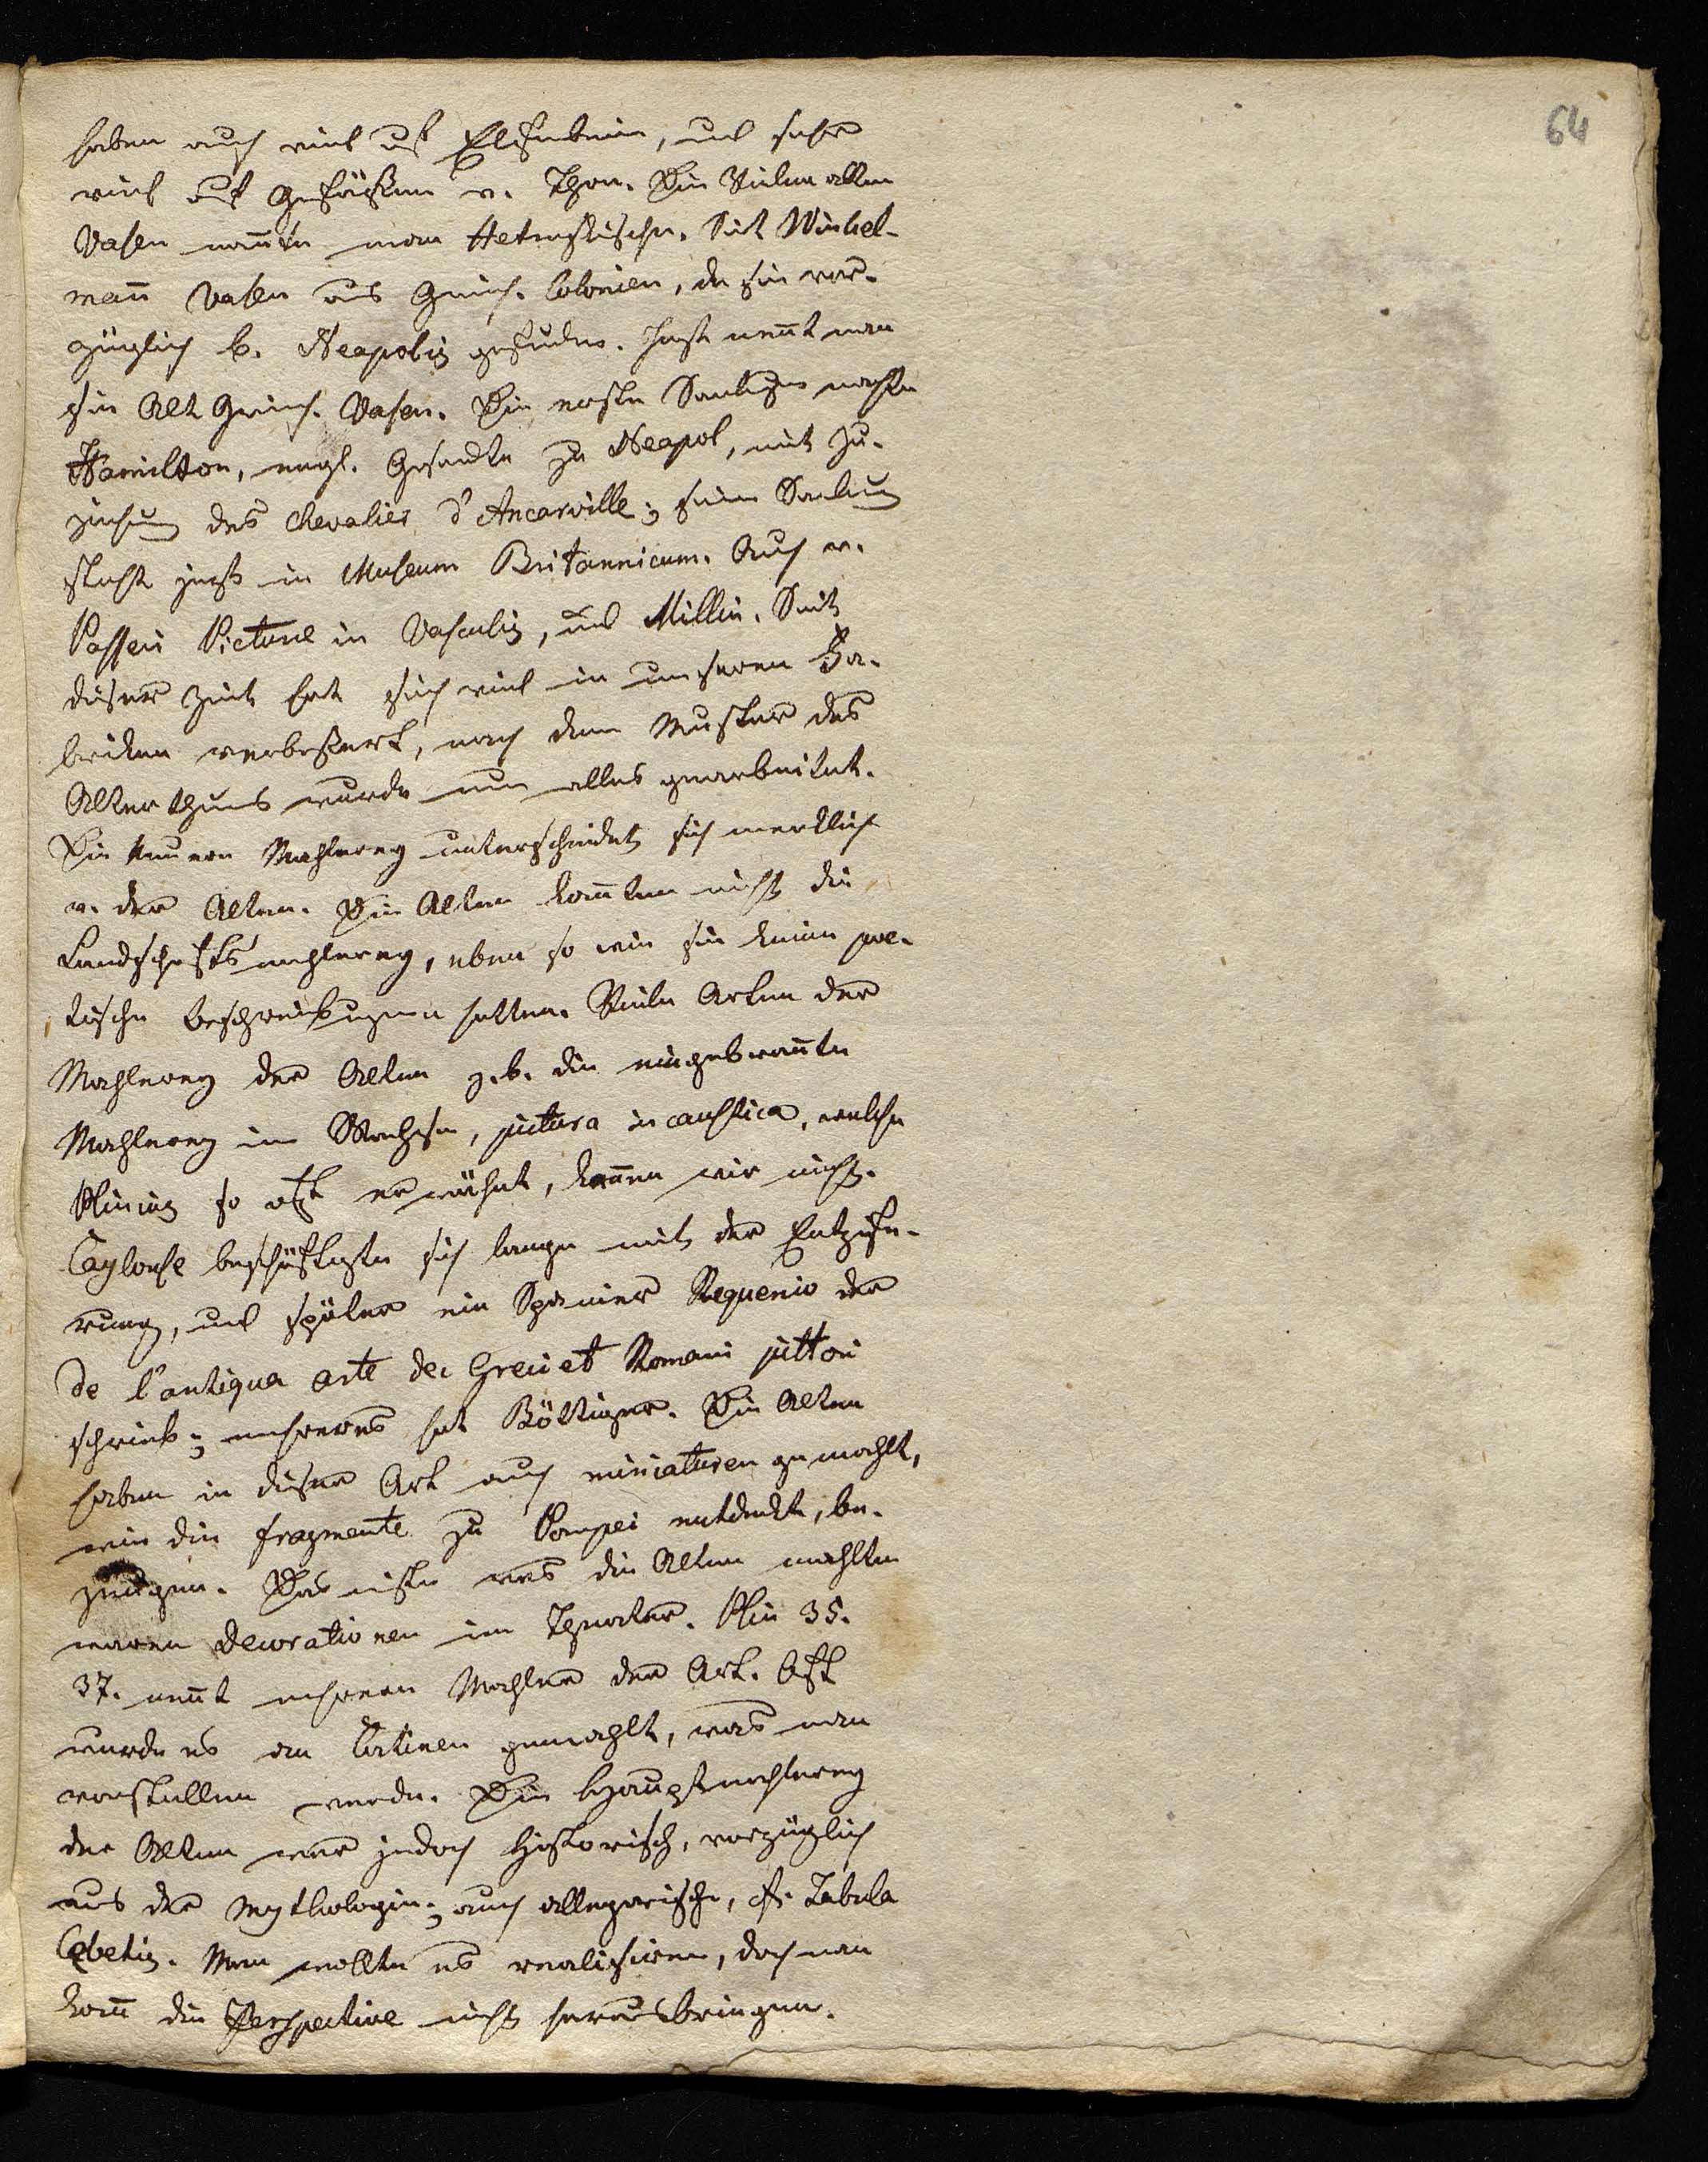 64
haben auch viel auf Elfenbein, und sehr
viel auf Gefäßen v. Thon. Die Vielen alten
Vasen nan̄te man Hetruskische. Seit Winkel-
man̄ Vasen aus Griech. Colonien, da sie vor-
züglich b. Neapolis gefunden. Jezt nen̄t man
sie Alt Griech. Vasen. Die erste Samlung machte
Hamilton, engl. Gesandte zu Neapol, mit Zu-
ziehung des chevalier d'Ancarville; seine Samlung
steht jezt in Museum Britannicum. Auch v.
Passeri Picturæ in Vasculis, und Millin. Seit
dieser Zeit hat sich viel in unseren Fa-
briken verbeßert, nach dem Muster des
Alterthums wurde nun alles gearbeitet.
Die neuere Mahlerey unterscheidet sich merklich
v. der Alten. Die Alten kan̄ten nicht die
Landschaftsmahlerey, eben so wie sie keine poe-
tische Beschreibungen hatten. Viele Arten der
Mahlerey der Alten z.b. die eingebran̄te
Mahlerey im Wachse, pictura in caustica, welche
Plinius so oft erwähnt, ken̄en wir nicht.
Caylouse beschäftigte sich lange mit der Entziffe-
rung, und später ein Spanier Requenio der
de l'antiqua arte dei Greci et Romani pittori
schrieb; mehreres hat Böttiger. Die Alten
haben in dieser Art auch miniaturen gemahlt,
wie die fragmente zu Pompei entdeckt, be-
zeugen. Das erste was die Alten mahlten
waren Decorationen im Theater. Plin 35.
37. nen̄t mehrere Mahler der Art. Oft
wurde es an Cortinen gemahlt, was man
vorstellen werde. Die Hauptmahlerey
der Alten war jedoch historisch, vorzüglich
aus der Mythologie; auch allegorische, cf. Tabula
Cebetis. Man wollte es realisiren, doch man
kon̄ die Perspective nicht herausbringen.